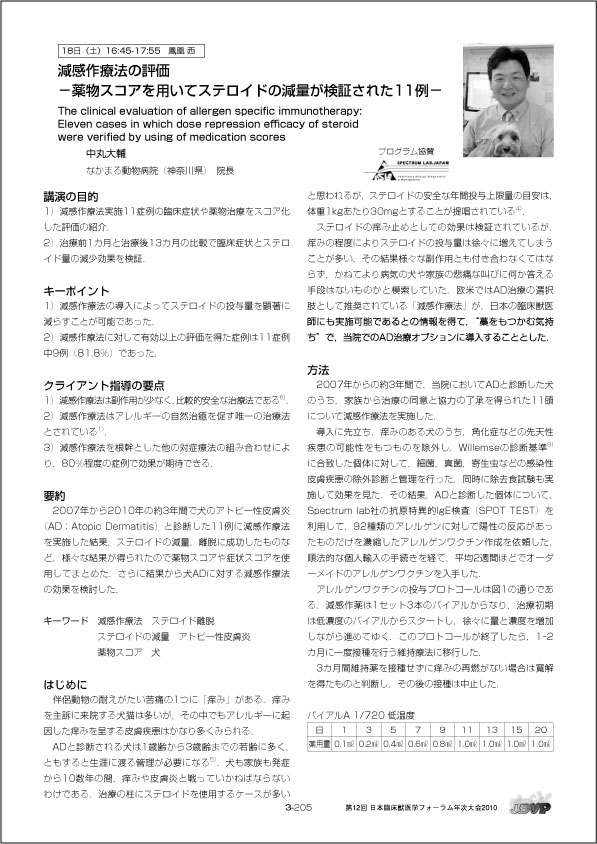 18日（土）16:45-17:55　鳳凰 西
減感作療法の評価
−薬物スコアを用いてステロイドの減量が検証された11例−
The clinical evaluation of allergen specific immunotherapy:
Eleven cases in which dose repression efficacy of steroid
were verified by using of medication scores
中丸大輔
なかまる動物病院（神奈川県）　院長
プログラム協賛
SPECTRUM LAB.JAPAN
講演の目的
1）減感作療法実施11症例の臨床症状や薬物治療をスコア化
した評価の紹介．
2）治療前1カ月と治療後13カ月の比較で臨床症状とステロ
イド量の減少効果を検証．
キーポイント
1）減感作療法の導入によってステロイドの投与量を顕著に
減らすことが可能であった．
2）減感作療法に対して有効以上の評価を得た症例は11症例
中9例（81.8%）であった．
クライアント指導の要点
1）減感作療法は副作用が少なく，比較的安全な治療法である⁶⁾．
2）減感作療法はアレルギーの自然治癒を促す唯一の治療法
とされている¹⁾．
3）減感作療法を根幹とした他の対症療法の組み合わせによ
り，80%程度の症例で効果が期待できる．
要約
2007年から2010年の約3年間で犬のアトピー性皮膚炎
（AD：Atopic Dermatitis）と診断した11例に減感作療法
を実施した結果，ステロイドの減量，離脱に成功したものな
ど，様々な結果が得られたので薬物スコアや症状スコアを使
用してまとめた．さらに結果から犬ADに対する減感作療法
の効果を検討した．
キーワード　減感作療法　ステロイド離脱
ステロイドの減量　アトピー性皮膚炎
薬物スコア　犬
はじめに
伴侶動物の耐えがたい苦痛の1つに「痒み」がある．痒み
を主訴に来院する犬猫は多いが，その中でもアレルギーに起
因した痒みを呈する皮膚疾患はかなり多くみられる．
ADと診断される犬は1歳齢から3歳齢までの若齢に多く，
ともすると生涯に渡る管理が必要になる⁵⁾．犬も家族も発症
から10数年の間，痒みや皮膚炎と戦っていかねばならない
わけである．治療の柱にステロイドを使用するケースが多い
と思われるが，ステロイドの安全な年間投与上限量の目安は，
体重1kgあたり30mgとすることが提唱されている⁴⁾．
ステロイドの痒み止めとしての効果は検証されているが，
痒みの程度によりステロイドの投与量は徐々に増えてしまう
ことが多い．その結果様々な副作用とも付き合わなくてはな
らず，かねてより病気の犬や家族の悲痛な叫びに何か答える
手段はないものかと模索していた．欧米ではAD治療の選択
肢として推奨されている「減感作療法」が，日本の臨床獣医
師にも実施可能であるとの情報を得て，“藁をもつかむ気持
ち”で，当院でのAD治療オプションに導入することとした．
方法
2007年からの約3年間で，当院においてADと診断した犬
のうち，家族から治療の同意と協力の了承を得られた11頭
について減感作療法を実施した．
導入に先立ち，痒みのある犬のうち，角化症などの先天性
疾患の可能性をもつものを除外し，Willemseの診断基準⁸⁾
に合致した個体に対して，細菌，真菌，寄生虫などの感染性
皮膚疾患の除外診断と管理を行った．同時に除去食試験も実
施して効果を見た．その結果，ADと診断した個体について，
Spectrum lab社の抗原特異的IgE検査（SPOT TEST）を
利用して，92種類のアレルゲンに対して陽性の反応があっ
たものだけを濃縮したアレルゲンワクチン作成を依頼した．
順法的な個人輸入の手続きを経て，平均2週間ほどでオーダ
ーメイドのアレルゲンワクチンを入手した．
アレルゲンワクチンの投与プロトコールは図1の通りであ
る．減感作薬は1セット3本のバイアルからなり，治療初期
は低濃度のバイアルからスタートし，徐々に量と濃度を増加
しながら進めてゆく．このプロトコールが終了したら，1-2
カ月に一度接種を行う維持療法に移行した．
3カ月間維持薬を接種せずに痒みの再燃がない場合は寛解
を得たものと判断し，その後の接種は中止した．
バイアルA 1/720 低温度
日　1　3　5　7　9　11　13　15　20
薬用量　0.1㎖　0.2㎖　0.4㎖　0.6㎖　0.8㎖　1.0㎖　1.0㎖　1.0㎖　1.0㎖
3-205　第12回 日本臨床獣医学フォーラム年次大会2010
JBVP